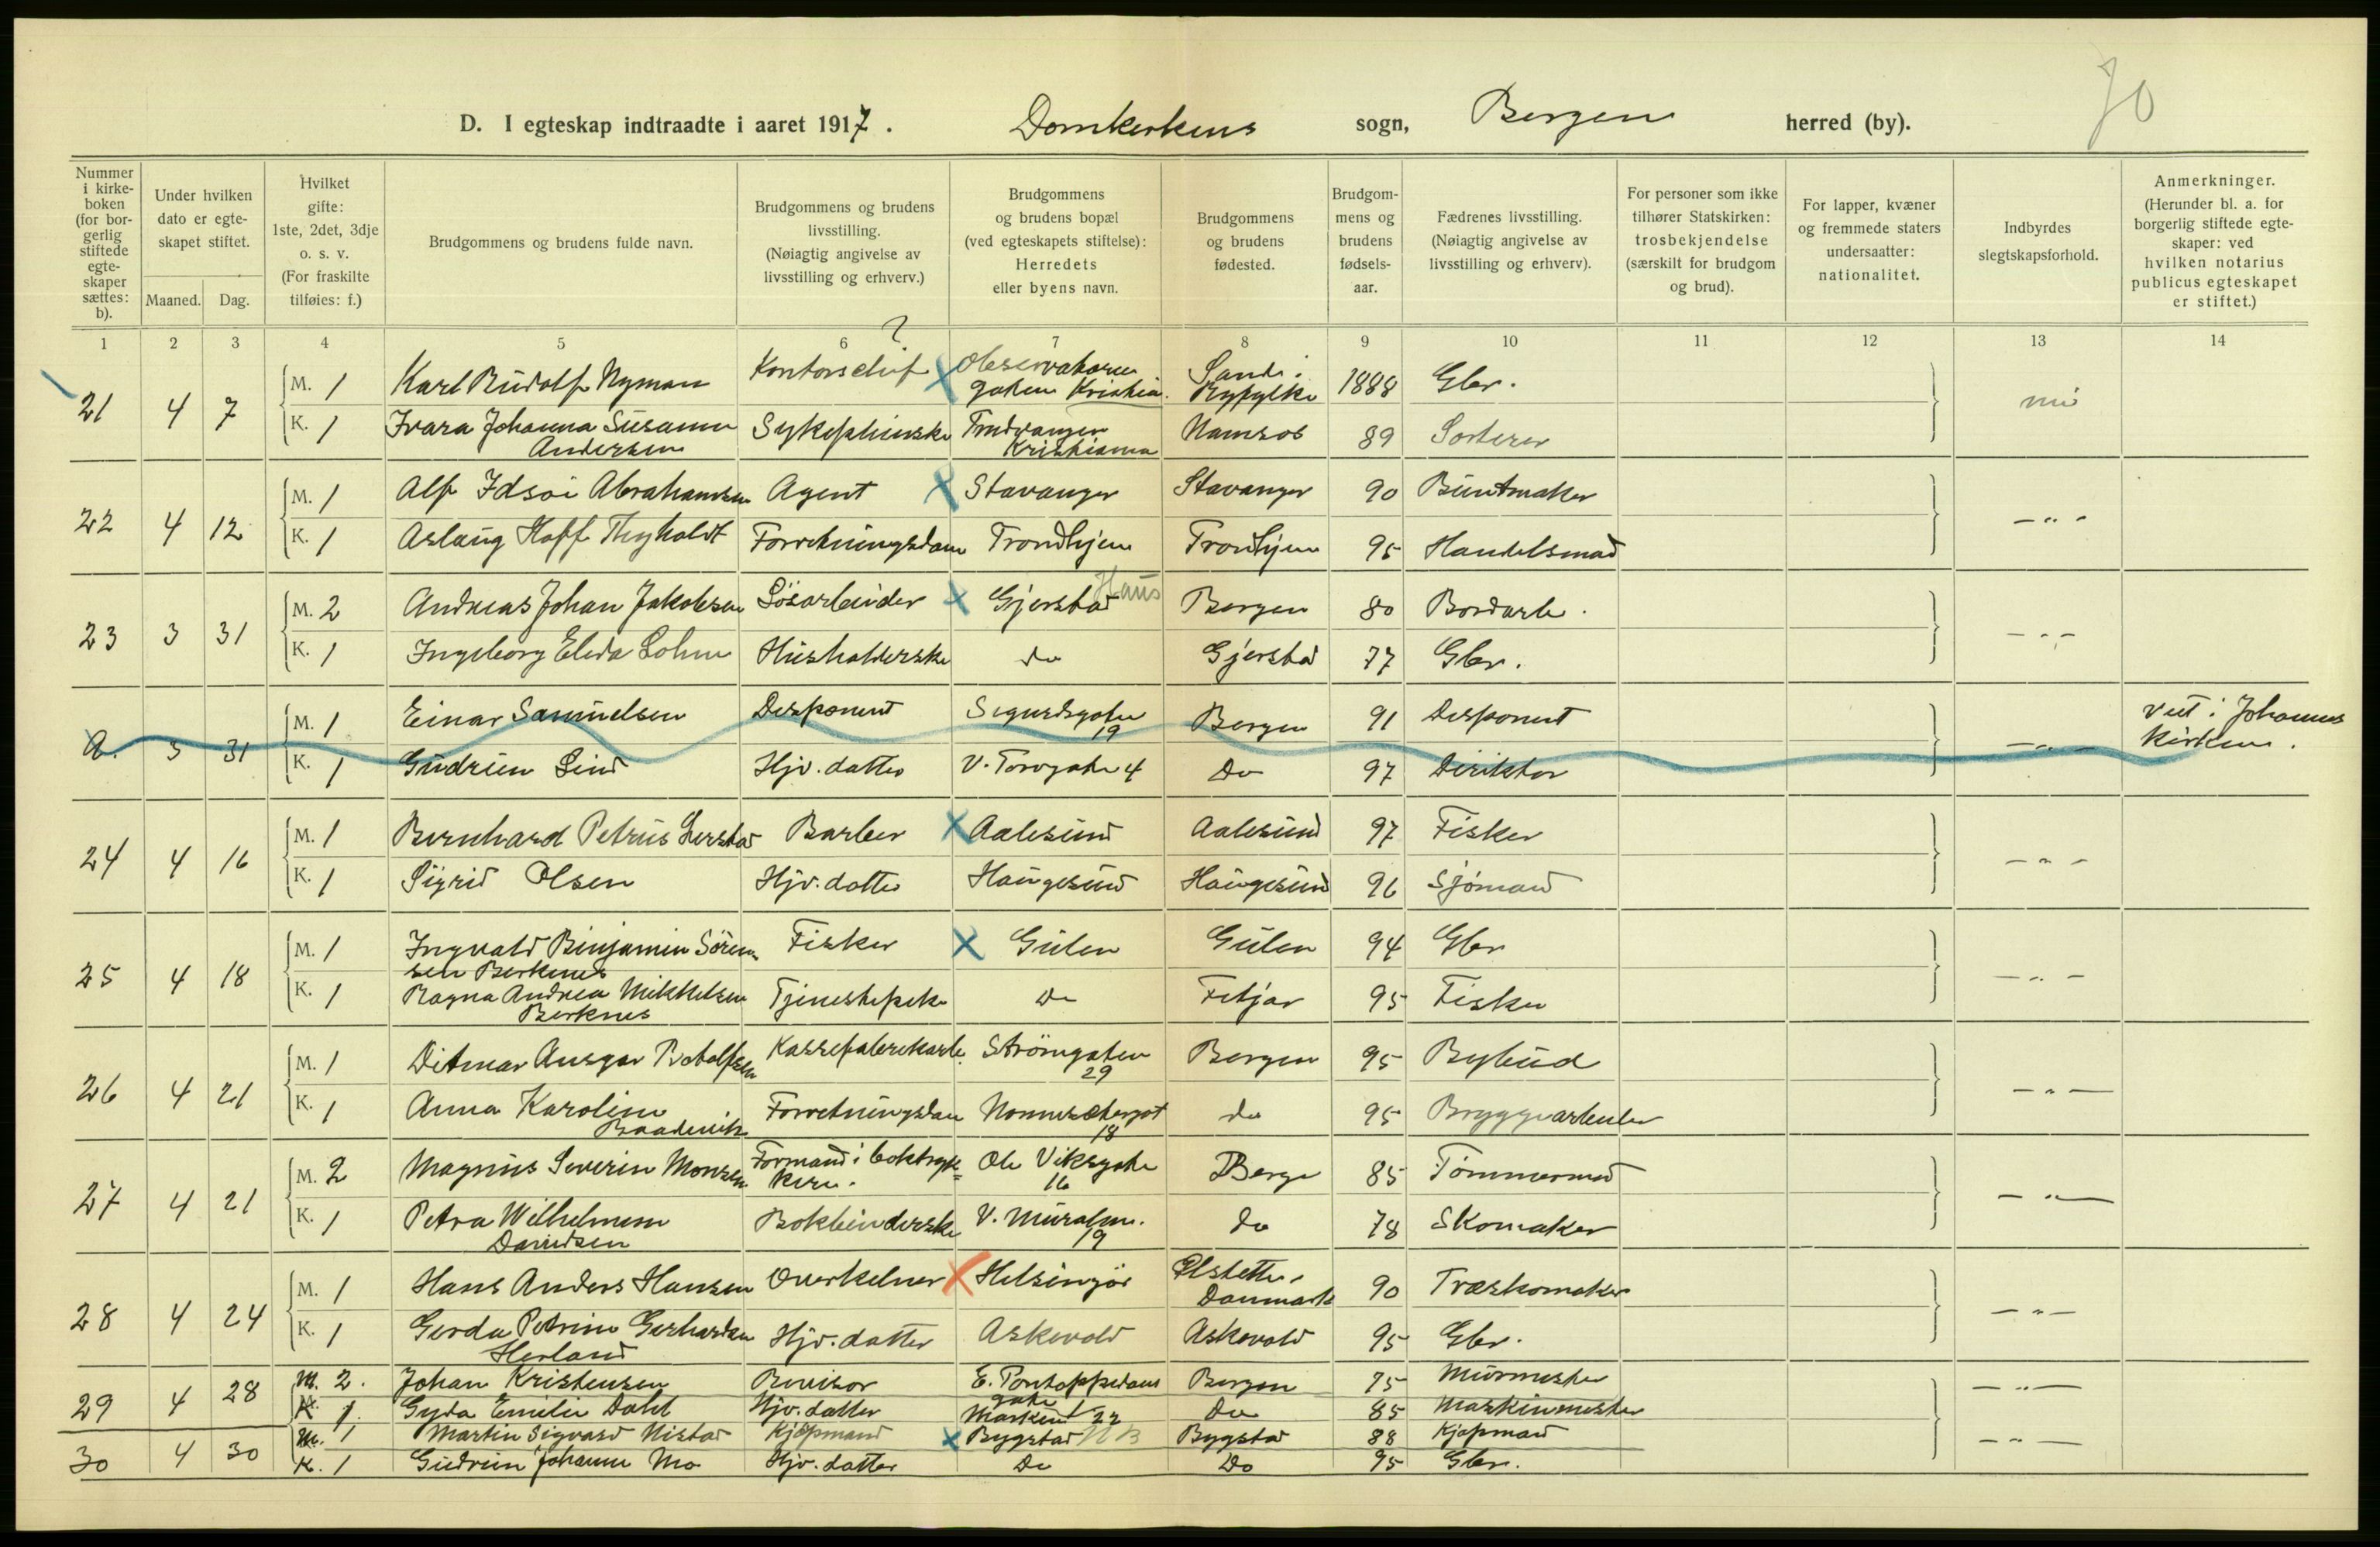 70
D. I egteskap indtraadte i aaret 1917. Domkirkens sogn, Bergen herred (by).
Nummer i kirke-boken (for bor-gerlig stiftede egte-skaper sættes: b).
Under hvilken dato er egte-skapet stiftet.
Maaned. Dag.
Hvilket gifte: 1ste, 2det, 3dje o. s. v. (For fraskilte tilføies: f.)
Brudgommens og brudens fulde navn.
Brudgommens og brudens livsstilling. (Nøiagtig angivelse av livsstilling og erhverv.)
Brudgommens og brudens bopæl (ved egteskapets stiftelse): Herredets eller byens navn.
Brudgommens og brudens fødested.
Brudgom-mens og brudens fødsels-aar.
Fædrenes livsstilling. (Nøiagtig angivelse av livsstilling og erhverv).
For personer som ikke tilhører Statskirken: trosbekjendelse (særskilt for brudgom og brud).
For lapper, kvæner og fremmede staters undersaatter: nationalitet.
Indbyrdes slegtskapsforhold.
Anmerkninger. (Herunder bl. a. for borgerlig stiftede egte-skaper: ved hvilken notarius publicus egteskapet er stiftet.)
1 2 3 4 5 6 7 8 9 10 11 12 13 14
?
21 4 7 M. 1 Karl Rudolf Nyman Kontorschef Observatorie gaten Kristia. Sand i Ryfylke 1888 Gbr. nei
K. 1 Ivara Johanna Susanna Andersen Sykepleierske Trudvangen Kristiania Namsos 89 Sorterer
22 4 12 M. 1 Alf Idsöe Abrahamsen Agent Stavanger Stavanger 90 Buntmaker - " -
K. 1 Aslaug Hoff Thyholdt Forretningsdame Trondhjem Trondhjem 95 Handelsmand
23 3 31 M. 2 Andreas Johan Jakobsen Lösarbeider Gjerstad Haus Bergen 80 Bordarb. - " -
K. 1 Ingeborg Elida Lohne Husholderske do Gjerstad 77 Gbr.
a. 3 31 M. 1 Einar Samuelsen Disponent Sigurdsgaten 19 Bergen 91 Disponent - " - viet i Johannes kirken.
K. 1 Gudrun Lind Hjv. datter V. Torvgate 4 Do 97 Direktør
24 4 16 M. 1 Bernhard Petrus Lerstad Barber Aalesund Aalesund 97 Fisker - " -
K. 1 Sigrid Olsen Hjv. datter Haugesund Haugesund 96 Sjömand
25 4 18 M. 1 Ingvald Benjamin Sören sen Berknes Fisker Gulen Gulen 94 Gbr - " -
K. 1 Ragna Andrea Mikkelsen Berknes Tjenestepike Do Fitjar 95 Fisker
26 4 21 M. 1 Ditmar Ansgar Rodolfsen Kassefabrikarb. Strömgaten 29 Bergen 95 Bybud - " -
K. 1 Anna Karoline Forretningsdame 18 do 95 Bryggearbeider
27 4 21 M. 2 Magnus Severin Monsen Formand i boktryk= keri. Ole Viksgate 16 Berge 85 Tömmermand - " -
K. 1 Petra Wilhelmine Davidsen Bokbinderske V. Muralm. 19 do 78 Skomaker
28 4 24 M. 1 Hans Anders Hansen Overkelner Helsingör Danmark 90 Træskomaker - " -
K. 1 Gerda Petrine Gerhardsen Herland Hjv. datter Askevold Askevold 95 Gbr.
29 4 28 M. 2. Johan Kristensen Revisor E. Pontoppidans gate Bergen 75 Murmester - " -
K. 1. Gyda Emilie Dahl Hjv. datter Marken 22 Do 85 Maskinmester
30 4 30 M. 1 Martin Sigvard Nistad Kjöpmand Bygstad NB Bygstad 88 Kjöpmand - " -
K. 1 Gudrun Johanne Mo Hjv. datter Do Do 95 Gbr.